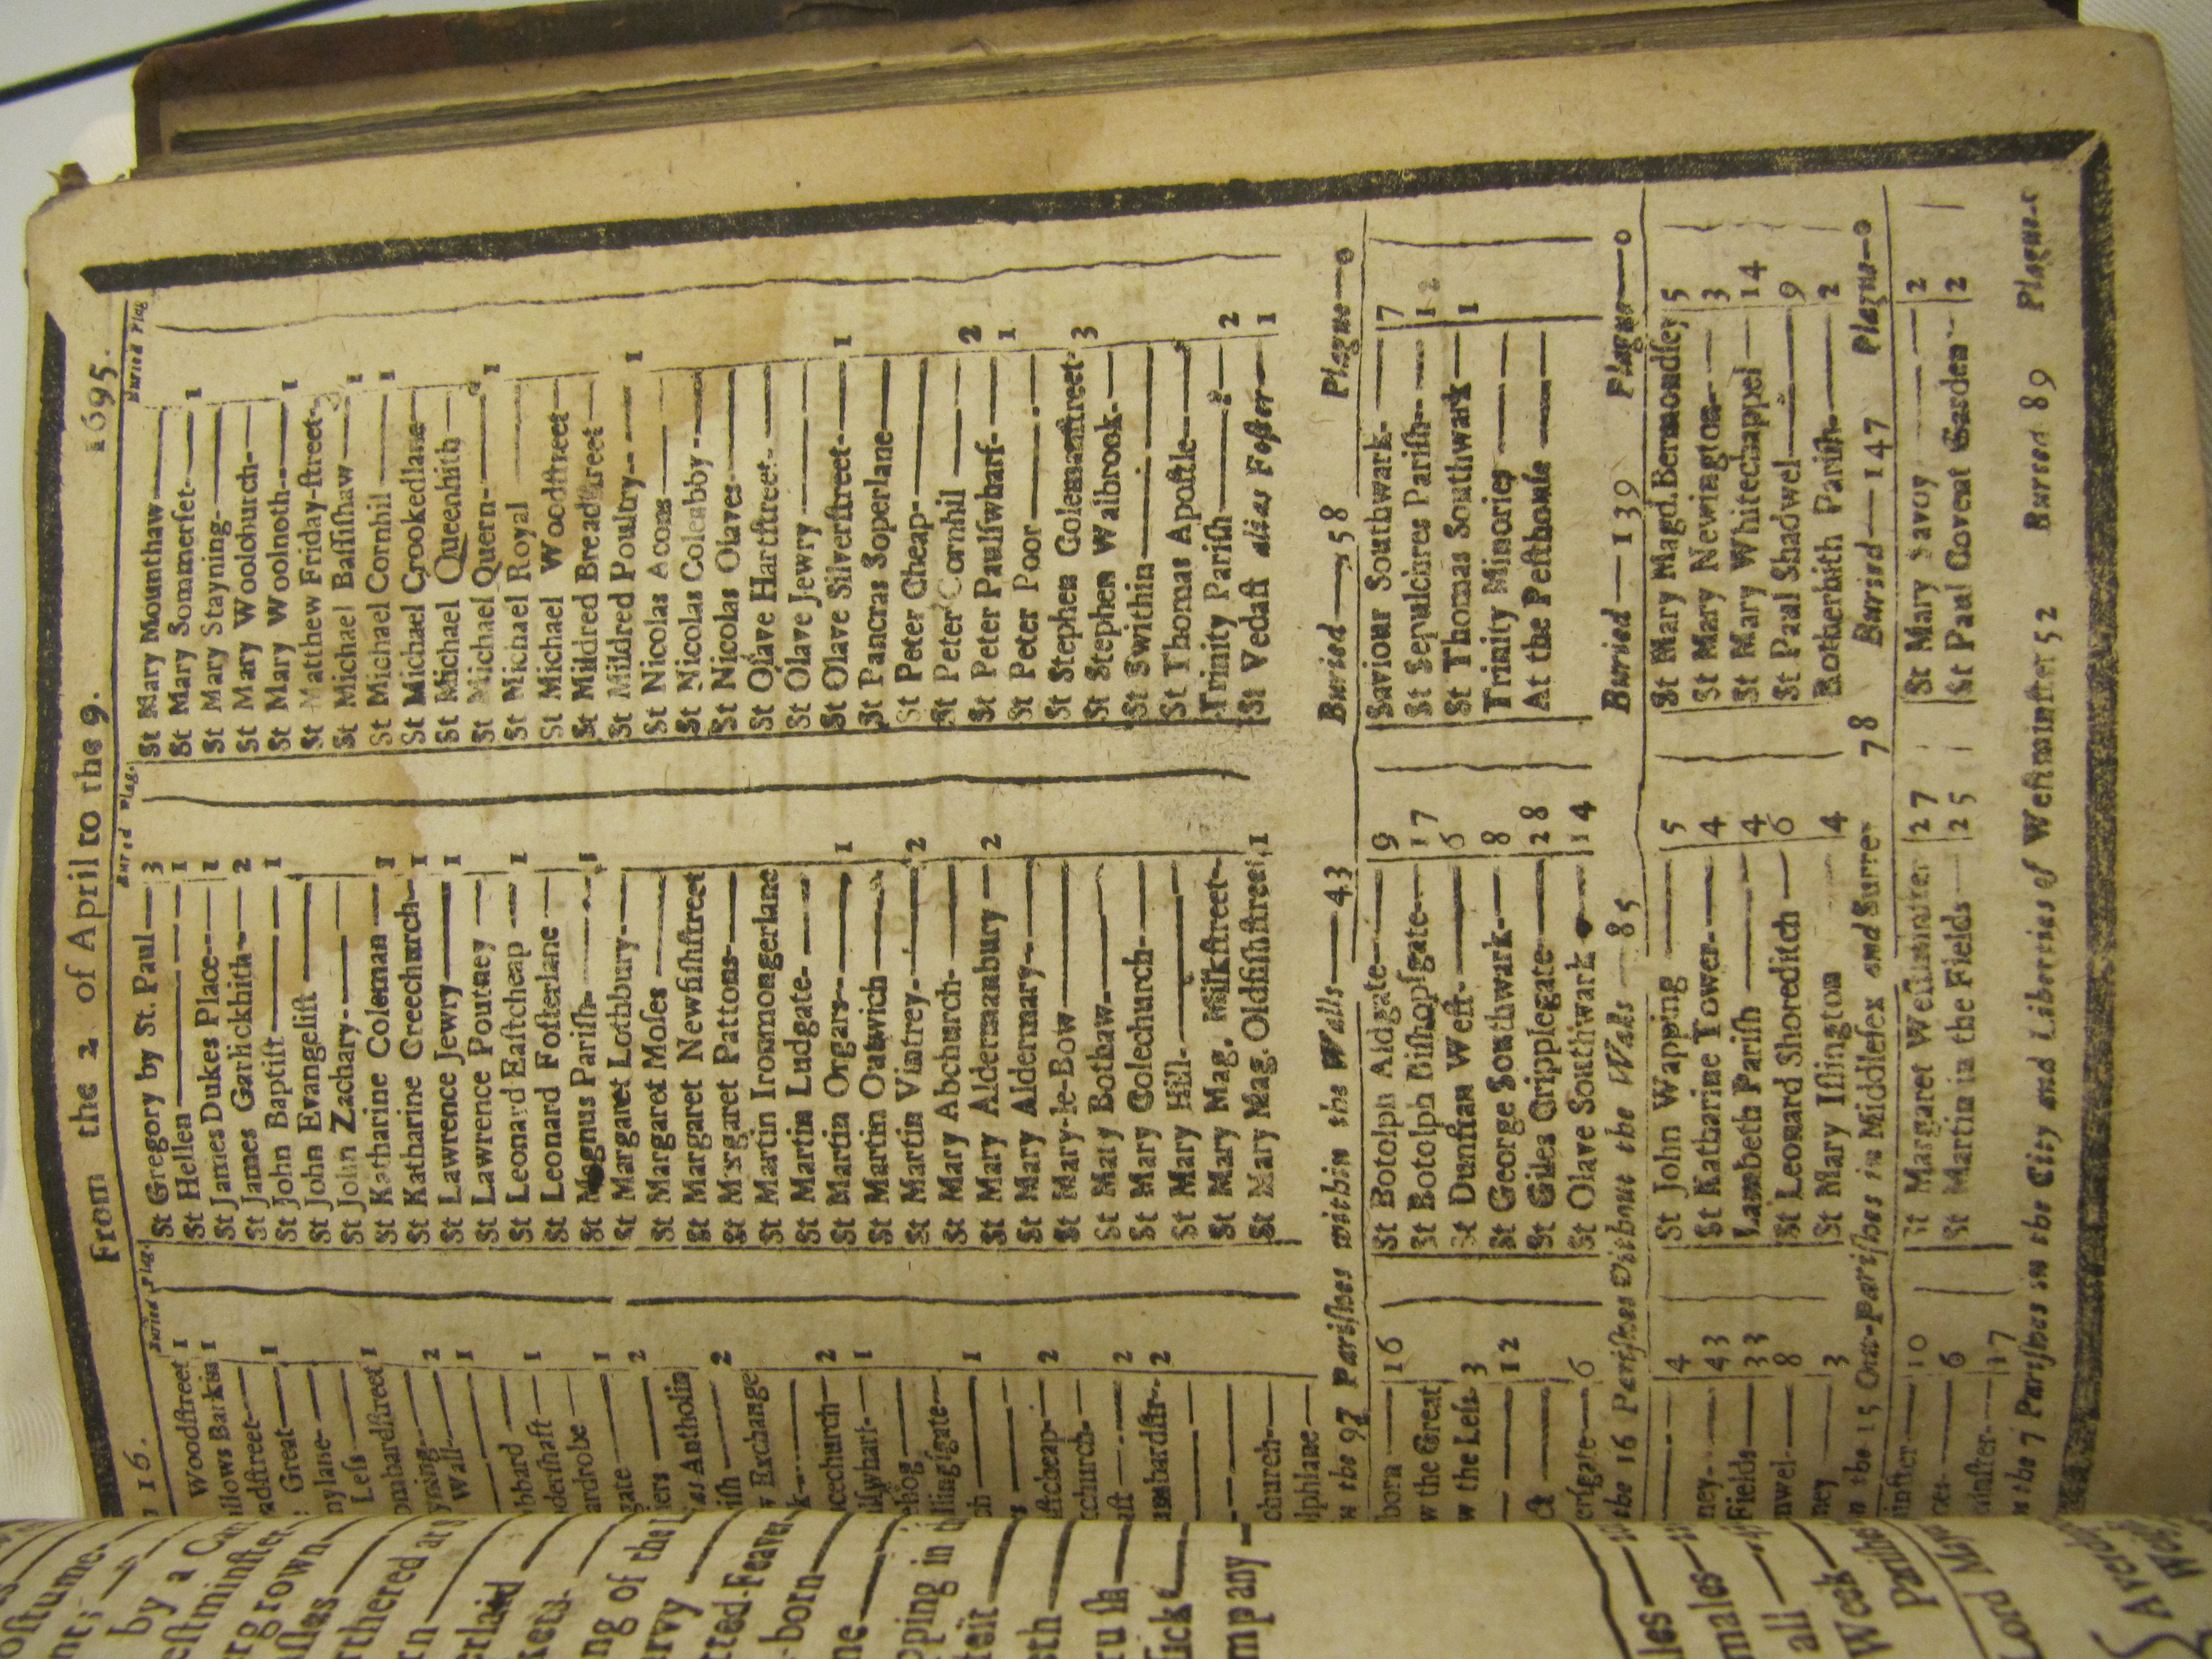 16. From the 2 of April to the 9. 1695.
Buried Plag.
Woodstreet 1
llows Barkin 1
adstreet—
Great— 1
nylane-
Less
ombardstreet 1
ying— 2
Wall— 1
bbard— 1
dershaft—
ardrobe— 1
gate— 2
iers—
as Antholin
ish— 2
w Exchange
k—
acechurch— 2
ilywharf— 1
whog—
llingsgate—
ch— 1
s—
astcheap— 2
cchurch—
aft— 2
umbardstr- 2
church—
lphlane—
Bur ed Plag.
St Gregory by St. Paul— 3
St Hellen— 1
St James Dukes Place— 1
St James Garlickhith— 2
St John Baptist— 1
St John Evangelist—
St John Zachary—
St Katharine Coleman— 1
St Katharine Creechurch— 1
St Lawrence Jewry— 1
St Lawrence Poutney—
St Leonard Eastcheap— 1
St Leonard Fosterlane—
St Magnus Parish— 1
St Margaret Lothbury—
St Margaret Moses—
St Margaret Newfishstreet
St Margaret Pattons—
St Martin Ironmongerlane
St Martin Ludgate—
St Martin Orgars— 1
St Martin Outwich—
St Martin Vintrey— 2
St Mary Abchurch—
St Mary Aldermanbury— 2
St Mary Aldermary—
St Mary-le-Bow—
St Mary Bothaw—
St Mary Colechurch—
St Mary Hill—
St Mary Mag. Milkstreet—
St Mary Mag. Oldfishstreet 1
Buried Plag
St Mary Mounthaw—
St Mary Sommerset— 1
St Mary Stayning—
St Mary Woolchurch—
St Mary Woolnoth— 1
St Matthew Friday-street-
St Michael Bassishaw— 1
St Michael Cornhil— 1
St Michael Crookedlane—
St Michael Queenhith—
St Michael Quern— 1
St Michael Royal
St Michael Woodstreet—
St Mildred Breadstreet—
St Mildred Poultry— 1
St Nicolas Acons—
St Nicolas Coleabby—
St Nicolas Olaves—
St Olave Hartstreet—
St Olave Jewry—
St Olave Silverstreet— 1
St Pancras Soperlane—
St Peter Cheap—
St Peter Cornhil— 2
St Peter Paulswharf— 1
St Peter Poor—
St Stephen Colemanstreet- 3
St Stephen Walbrook—
St Swithin—
St Thomas Apostle—
Trinity Parish— 2
St Vedast alias Foster— 1
n the 97 Parishes within the Walls— 43 Buried— 58 Plague—0
born— 16
w the Great
w the Less 3
— 12
ct—
ersgate— 6
St Botolph Aldgate— 9
St Botolph Bishopsgate— 17
St Dunstan West— 6
St George Southwark— 8
St Giles Cripplegate— 28
St Olave Southwark— 14
Saviour Southwark— 7
St Sepulchres Parish— 12
St Thomas Southwark— 1
Trinity Minories—
At the Pesthouse—
the 16 Parishes without the Walls— 85 Buried— 139 Plague—0
— 4
ney— 43
Fields— 33
nwel— 8
ney 3
St John Wapping— 5
St Katharine Tower— 4
Lambeth Parish— 4
St Leonard Shoreditch— 6
St Mary Islington 4
St Mary Magd. Bermondsey 5
St Mary Newington— 3
St Mary Whitechappel— 14
St Paul Shadwel— 9
Rotherhith Parish— 2
n the 15 Out-Parishes in Middlesex and Surrey 78 Buried— 147 Plague—0
inster— 10
6
minster— 17
St Margaret Westminster 27
St Martin in the Fields— 25
St Mary Savoy— 2
St Paul Covent Garden— 2
n the 7 Parishes in the City and Liberties of Westminster 52 Buried 89 Plague-0
ostume
by a C
estminster
ergrown
thered at
erlaid
ng of the
rvy—
tted-Feaver
-born—
pping in
teir—
mpany—
les—
males—
all—
Week—
Parishes
Lord May